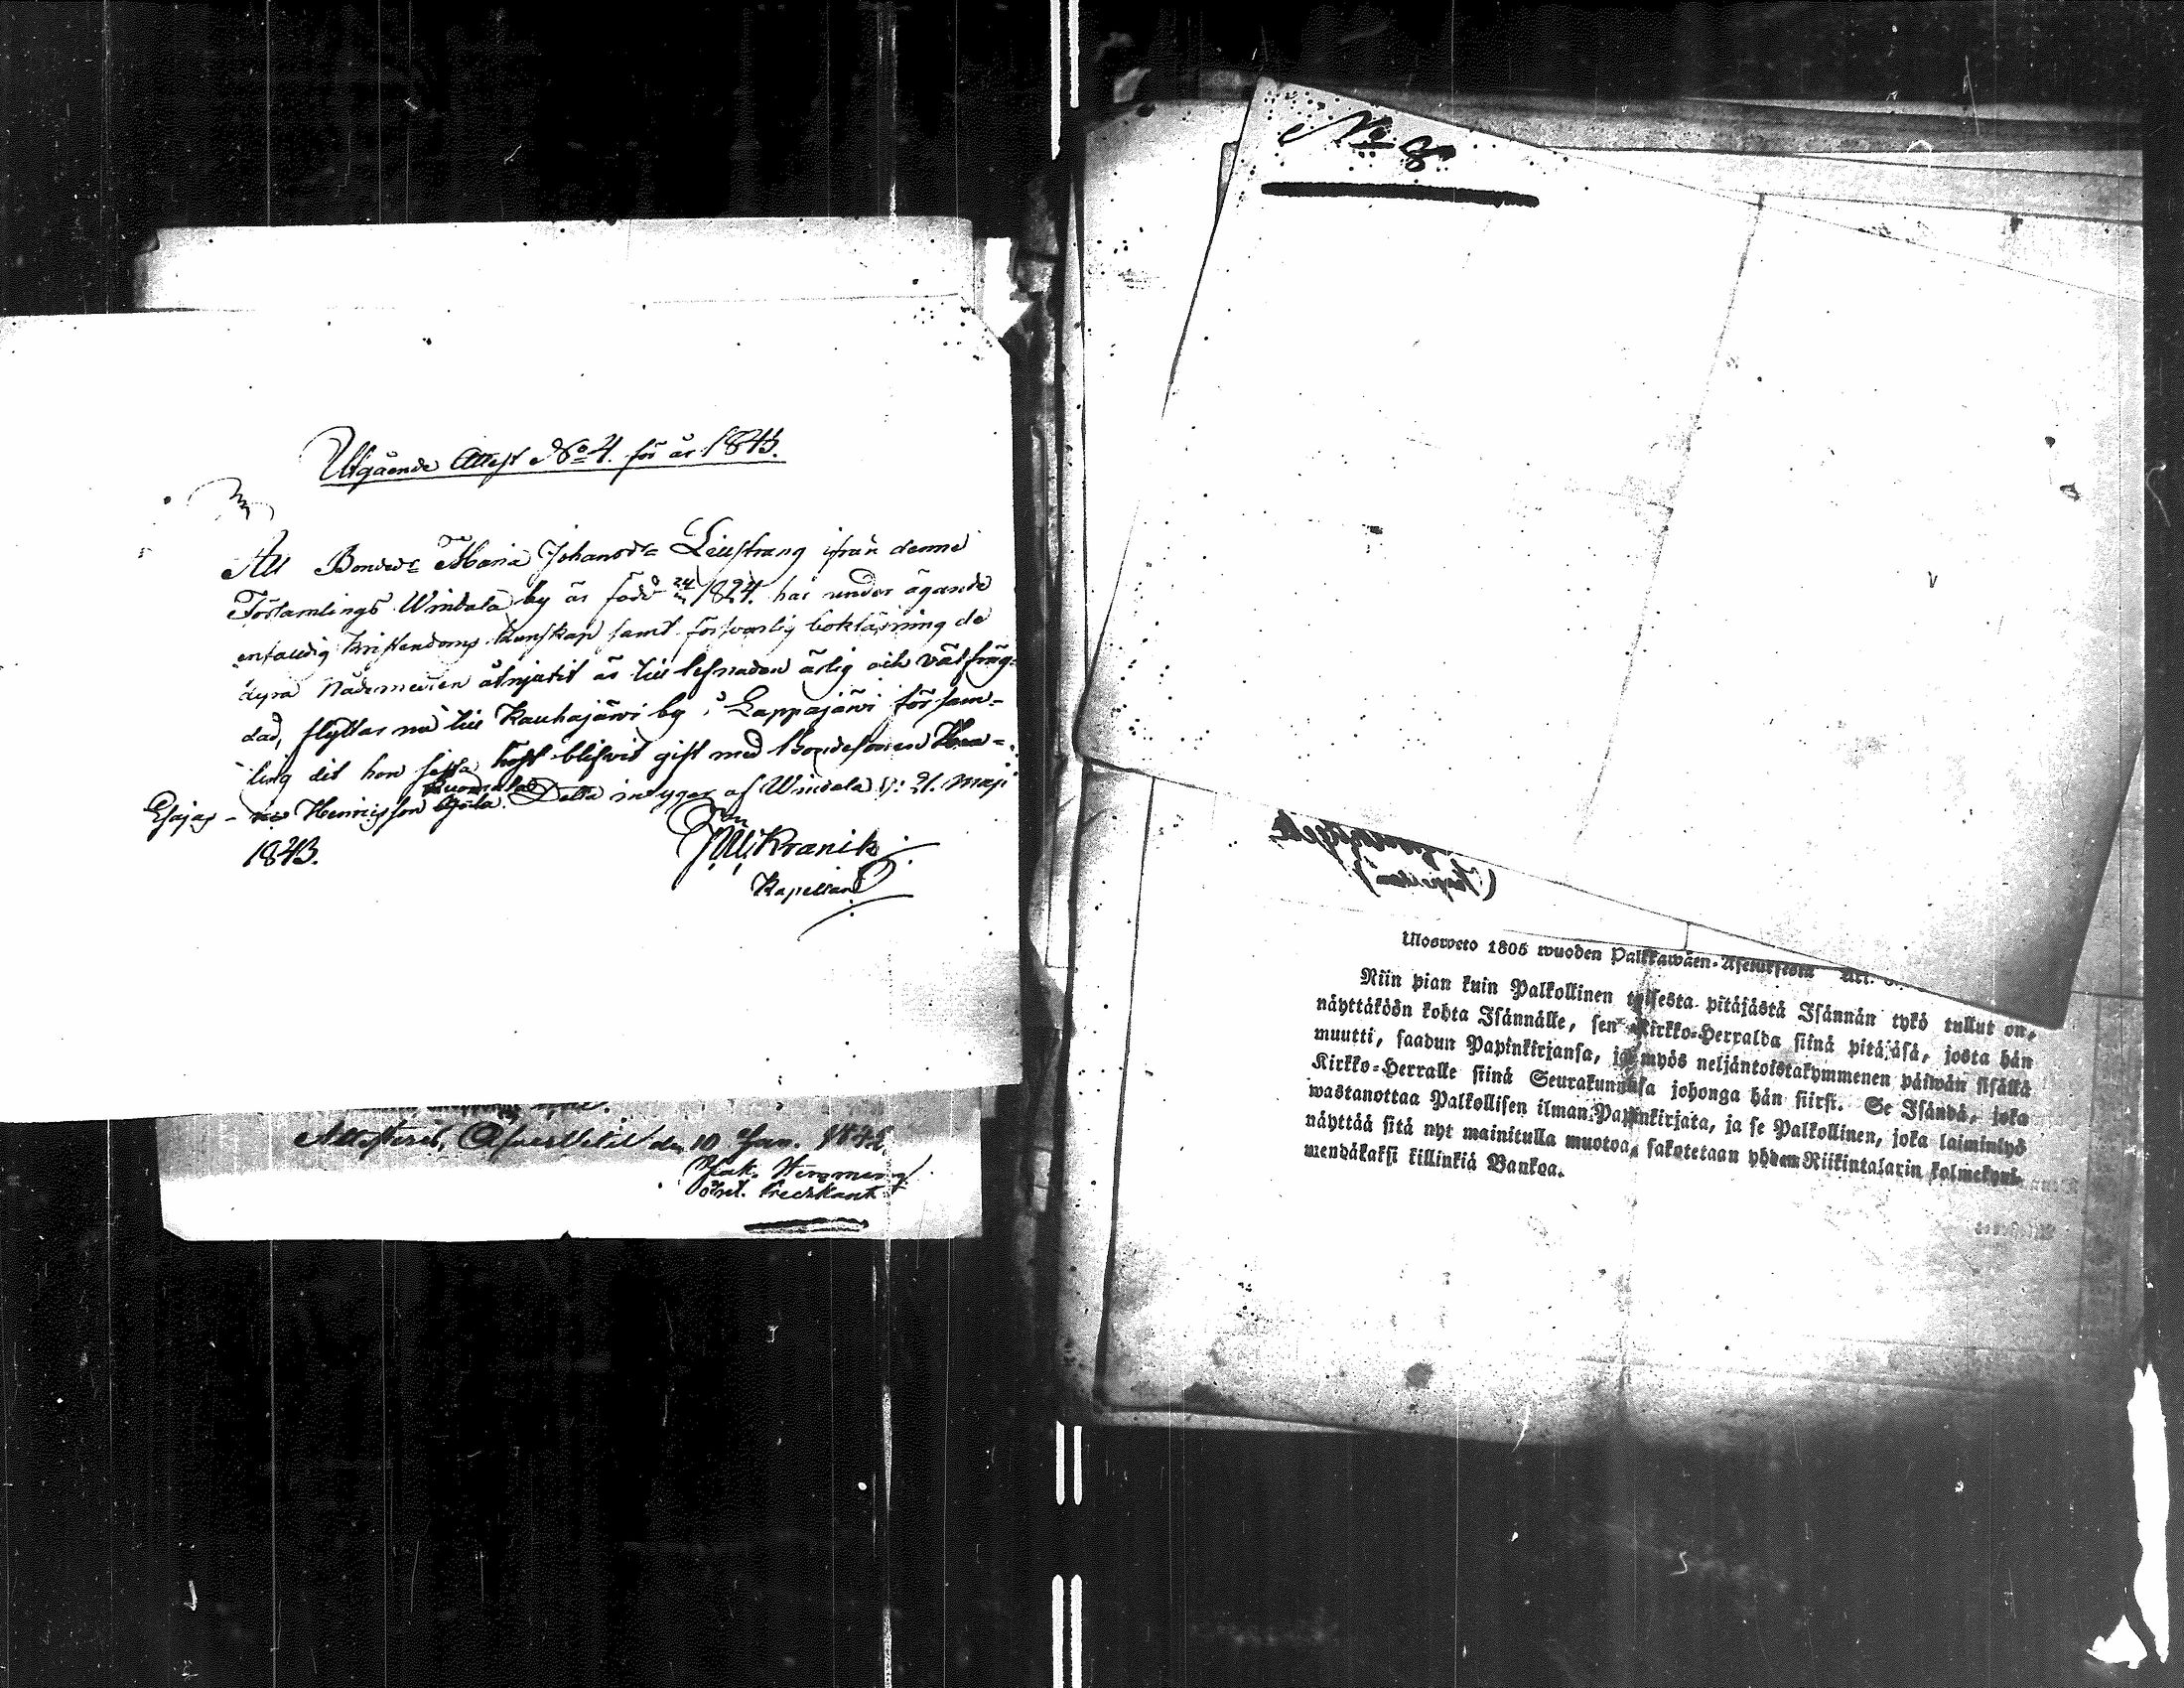 Utgående Attest No 4. för år 1843.
Att Bonded:r Maria Johansd:r Liustrang ifrån denne
Församlings Windala by är född 24/ 1824. har under ägande
enfaldig kristendoms kunskap samt försvarlig bokläsning de
dyra Nådemedlen åtnjutit är till lefnaden ärlig och välfräg-
dad, flyttar nu till Kauhajärvi by i Lappajärvi försam-
ling dit hon sista höst blifvit gift med Bondesonen
Esajas Henricsson Detta intygar af Windala d: 21. Maji
1843.
Kranik
Kapellan
Attesterar, den 10 Jan. 1842.
Jak. Hemming
No 8
Ulosweto 1805 wuoden Palkkawäen-Asetuksesta Art.
Niin pian kuin Palkollinen toisesta pitäjästä Isännän tykö tullut on,
näyttäköön kohta Isännälle, sen Kirkko-Herralda siinä pitäjäsä, josta hän
muutti, saadun Papinkirjansa, ja myös neljäntoistakymmenen päiwän sisällä
Kirkko-Herralle siinä Seurakunnasa johonga hän siirsi. Se Isändä, joka
wastanottaa Palkollisen ilman Papinkirjata, ja se Palkollinen, joka laiminlyö
näyttää sitä nyt mainitulla muotoa, sakotetaan yhden Riikintalarin kolmekym-
mendäkaksi killinkiä Bankoa.